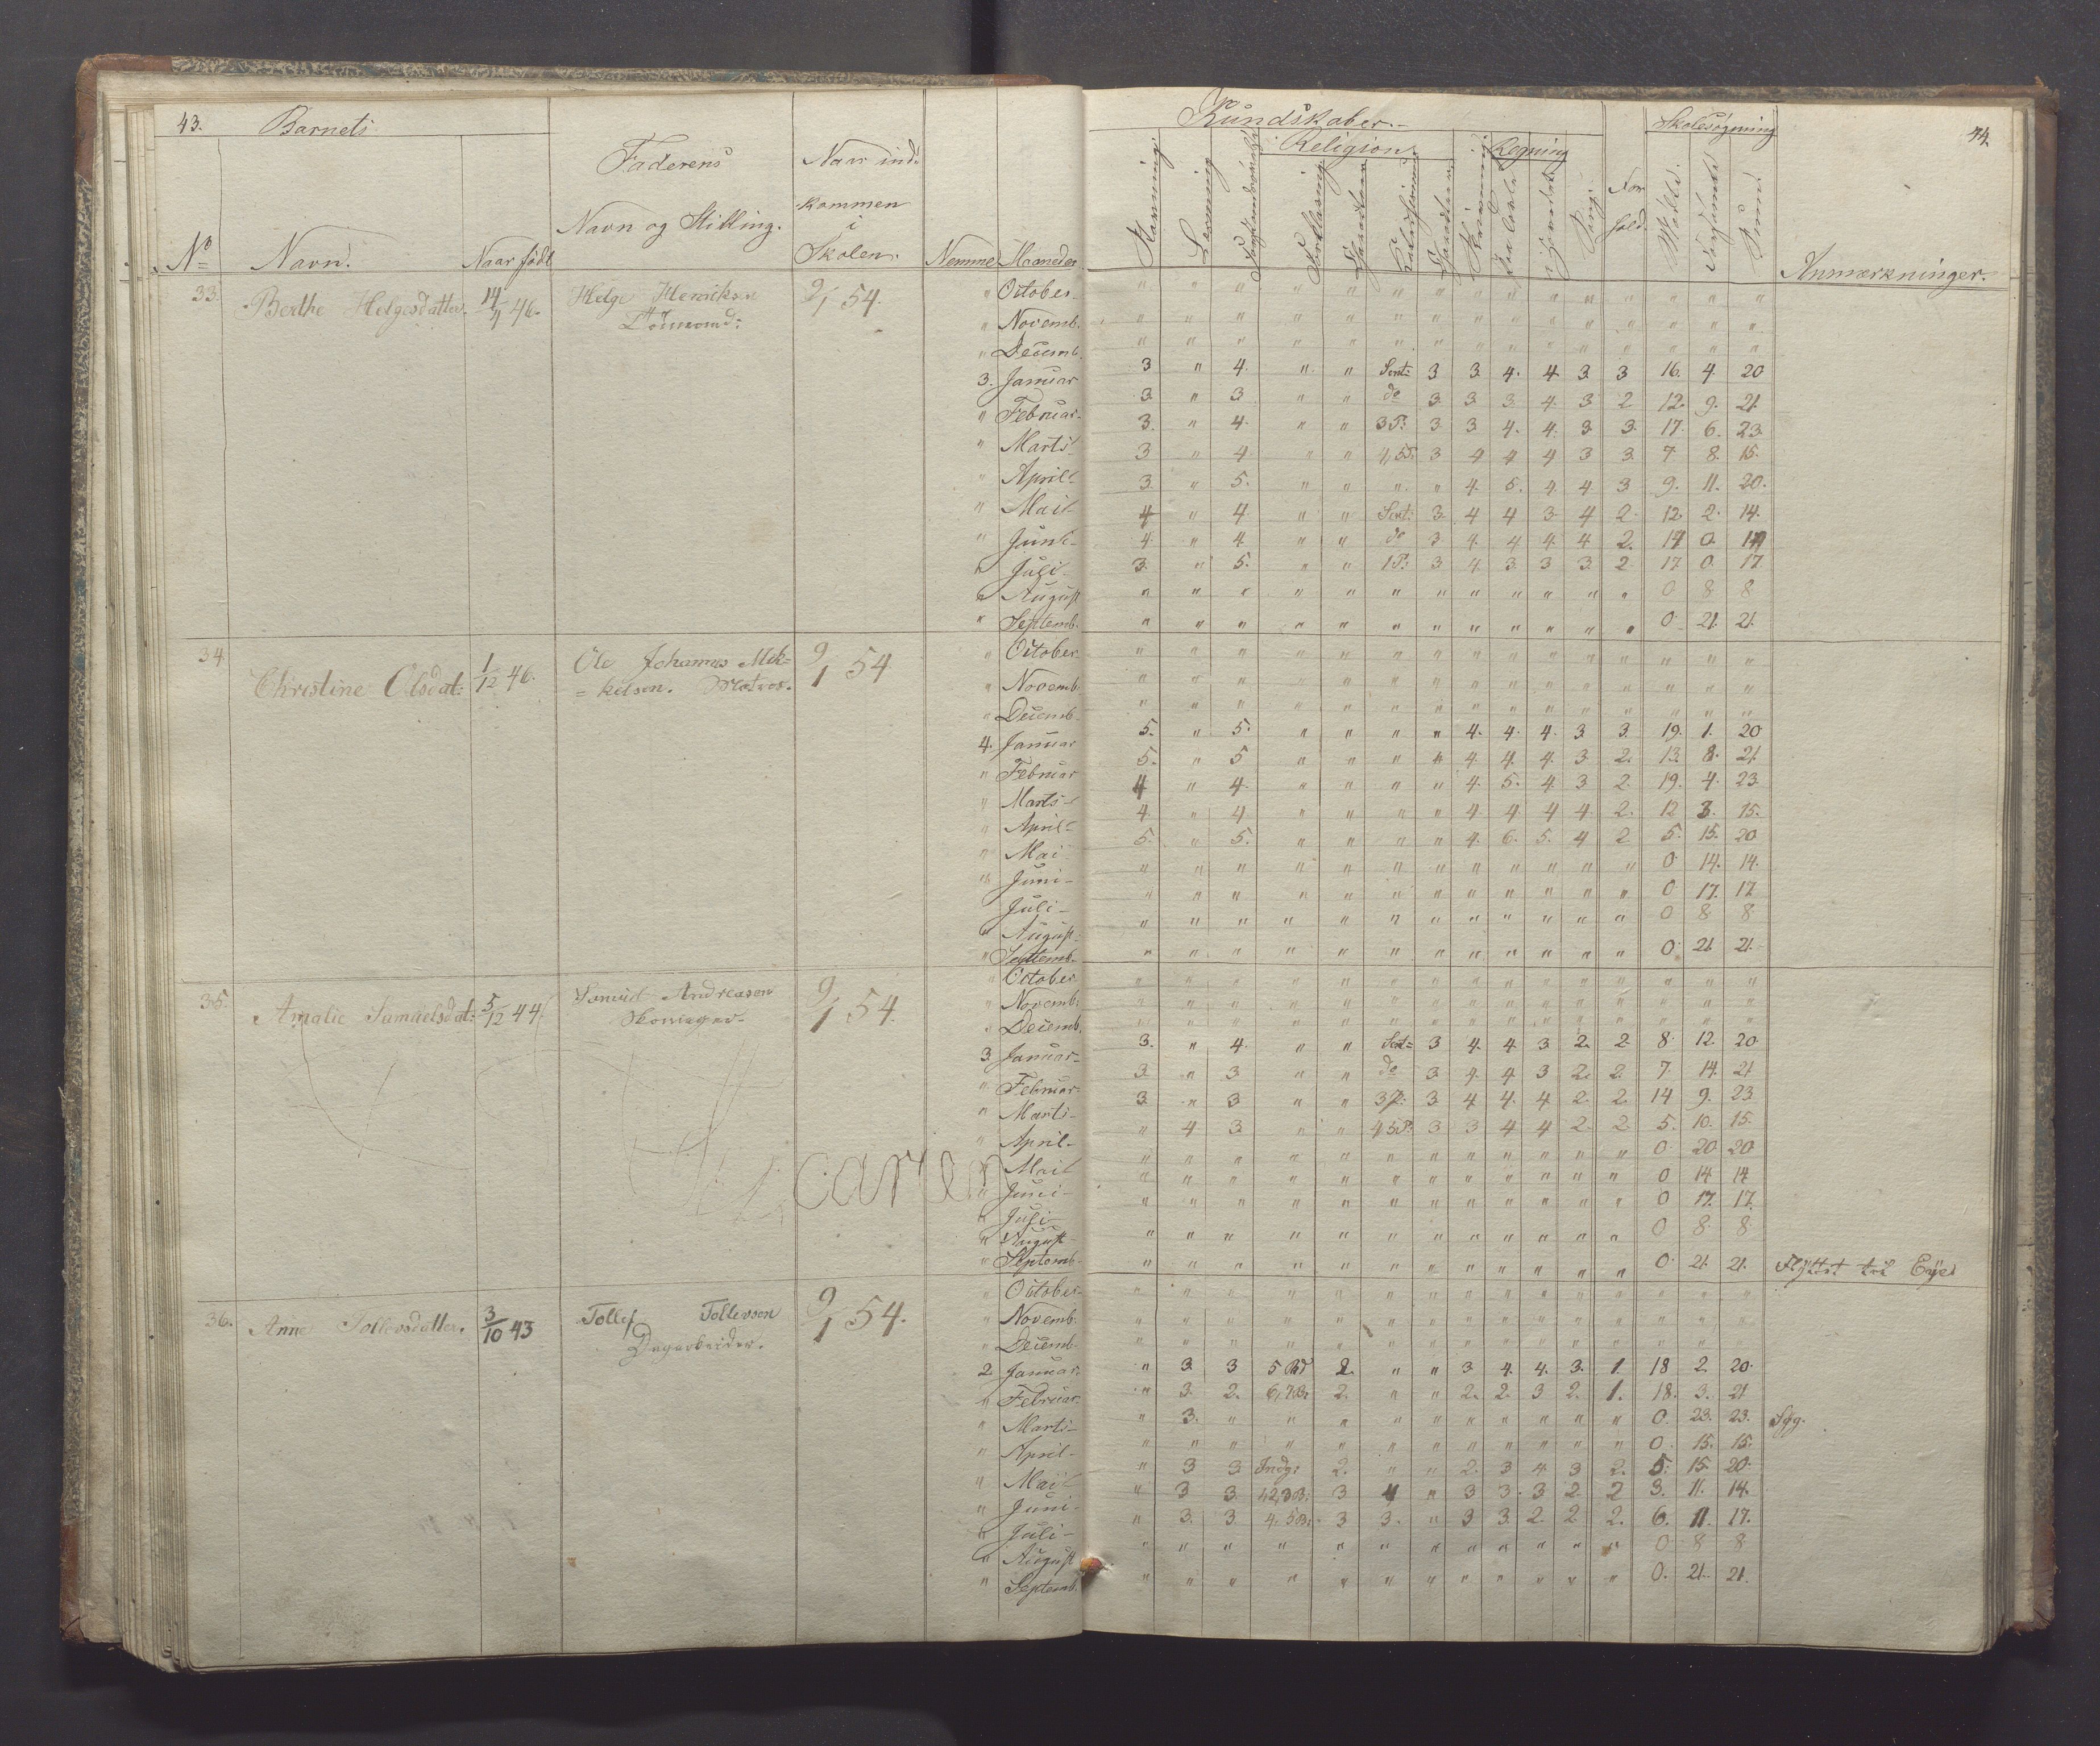 43. Barnets
Faderens
Navn og Stilling.
Naar ind-
kommen
i
Skolen.
No Navn. Naar født Nemme Maaneder
Kundskaber.
Religion. Regning
Skolesøgning
44.
Stavning Læsning Forklaring Skrivning Sang For-
hold. Mødt Forsømte Summa Anmærkninger.
33. Berthe Helgesdatter. 14/4 46. Helge Henriksen 9/1 54.
" October " " " " " " " " " " " " " " "
" Novemb. " " " " " " " " " " " " " " "
" Decemb. " " " " " " " " " " " " " " "
3. Januar 3 " 4. " " Sent: 3 3. 4. 4 3 3 16. 4 20
" Februar 3. " 3 " " do 3. 3. 3 4. 3 2 12. 9. 21.
" Marts 3. " 4. " " 3P: 3. 3 4. 4. 3 3. 17. 6. 23.
" April 3 " 4 " " 4,5P. 3 4 4 4 3 3. 7 8. 15.
" Mai 3. " 5. " " " " 4. 5. 4. 4 3 9. 11. 20.
" Juni 4 " 4. " " Sent: 3. 4 4 3. 4 2. 12. 2. 14.
" Juli 4. " 4 " " do 3. 4. 4 4. 4 2. 17 0. 17
" August 3. " 5. " " 1P: 3 4. 3 3 3. 2 17 0. 17
" Septemb. " " " " " " " " " " " " 0 8 8
" " " " " " " " " " " " 0. 21. 21.
34 Christine Olsdat: 1/12 46. Ole Johannes Mik=
=kelsen. Matros. 9/1 54
" October " " " " " " " " " " " " " " "
" Novemb. " " " " " " " " " " " " " " "
" Decemb. " " " " " " " " " " " " " " "
4. Januar 5. " 5. " " " " 4. 4. 4. 3 3. 19. 1. 20
" Februar 5. " 5 " " " " 4. 4. 4. 3 2. 13. 8. 21
" Marts 4 " 4. " " " " 4. 5. 4. 3 2. 19. 4. 23.
" April 4. " 4 " " " " 4 4. 4 4. 2. 12 3. 15.
" Mai 5. " 5. " " " " 4. 6. 5. 4 2 5. 15. 20
" Juni " " " " " " " " " " " " 0. 14. 14.
Juli " " " " " " " " " " " " 0 17. 17
" August " " " " " " " " " " " " 0 8 8
" Septemb. " " " " " " " " " " " " 0. 21. 21.
35. Amalie Samuelsdat: 5/12 44. Samuel Andreasen
Skomager. 9/1 54.
" October " " " " " " " " " " " " " " "
" Novemb. " " " " " " " " " " " " " " "
" Decemb. " " " " " " " " " " " " " " "
3. Januar 3. " 4. " " Sent= 3 4. 4 3 2. 2. 8. 12. 20.
" Februar 3. " 3. " " do 3. 4. 4 3 2. 2. 7. 14. 21
" Marts 3. " 3 " " 3P: 3. 4 4. 4 2. 2. 14 9. 23
" April " 4 3. " " 4,5P. 3 3 4 4 2. 2. 5. 10. 15.
" Mai " " " " " " " " " " " " 0. 20 20
" Juni " " " " " " " " " " " " 0 14 14
" Juli " " " " " " " " " " " " 0 17. 17.
" August " " " " " " " " " " " " 0 8. 8.
" Septemb. " " " " " " " " " " " " 0. 21. 21. Flyttet til
caren
36. Anne Tollevsdatter. 3/10 43 Tollef Tollevson
Dagarbeider. 9/1 54.
" October " " " " " " " " " " " " " " "
" Novemb. " " " " " " " " " " " " " " "
" Decemb. " " " " " " " " " " " " " " "
2 Januar. " 3. 3 5 Bd 2. " " 3 4. 4. 3. 1. 18 2 20.
" Februar. " 3. 2. 6,7B. 2. " " 2. 2. 3 2. 1. 18. 3. 21
" Marts " 3. " " " " " " " " " " 0. 23. 23. Syg.
" April " " " " " " " " " " " " 0. 15. 15.
" Mai " 3 3 Indg: 2. " " 2. 3 4. 3 2. 5. 15. 20.
" Juni " 3 3. 4 " 3 3. 3 2. 2 3. 11. 14.
" Juli " 3. 3. 4. 5B. 3 3. " 3 3. 2. 2. 2. 6. 11. 17.
" August " " " " " " " " " " " " 0 8 8
" Septemb. " " " " " " " " " " " " 0. 21. 21.